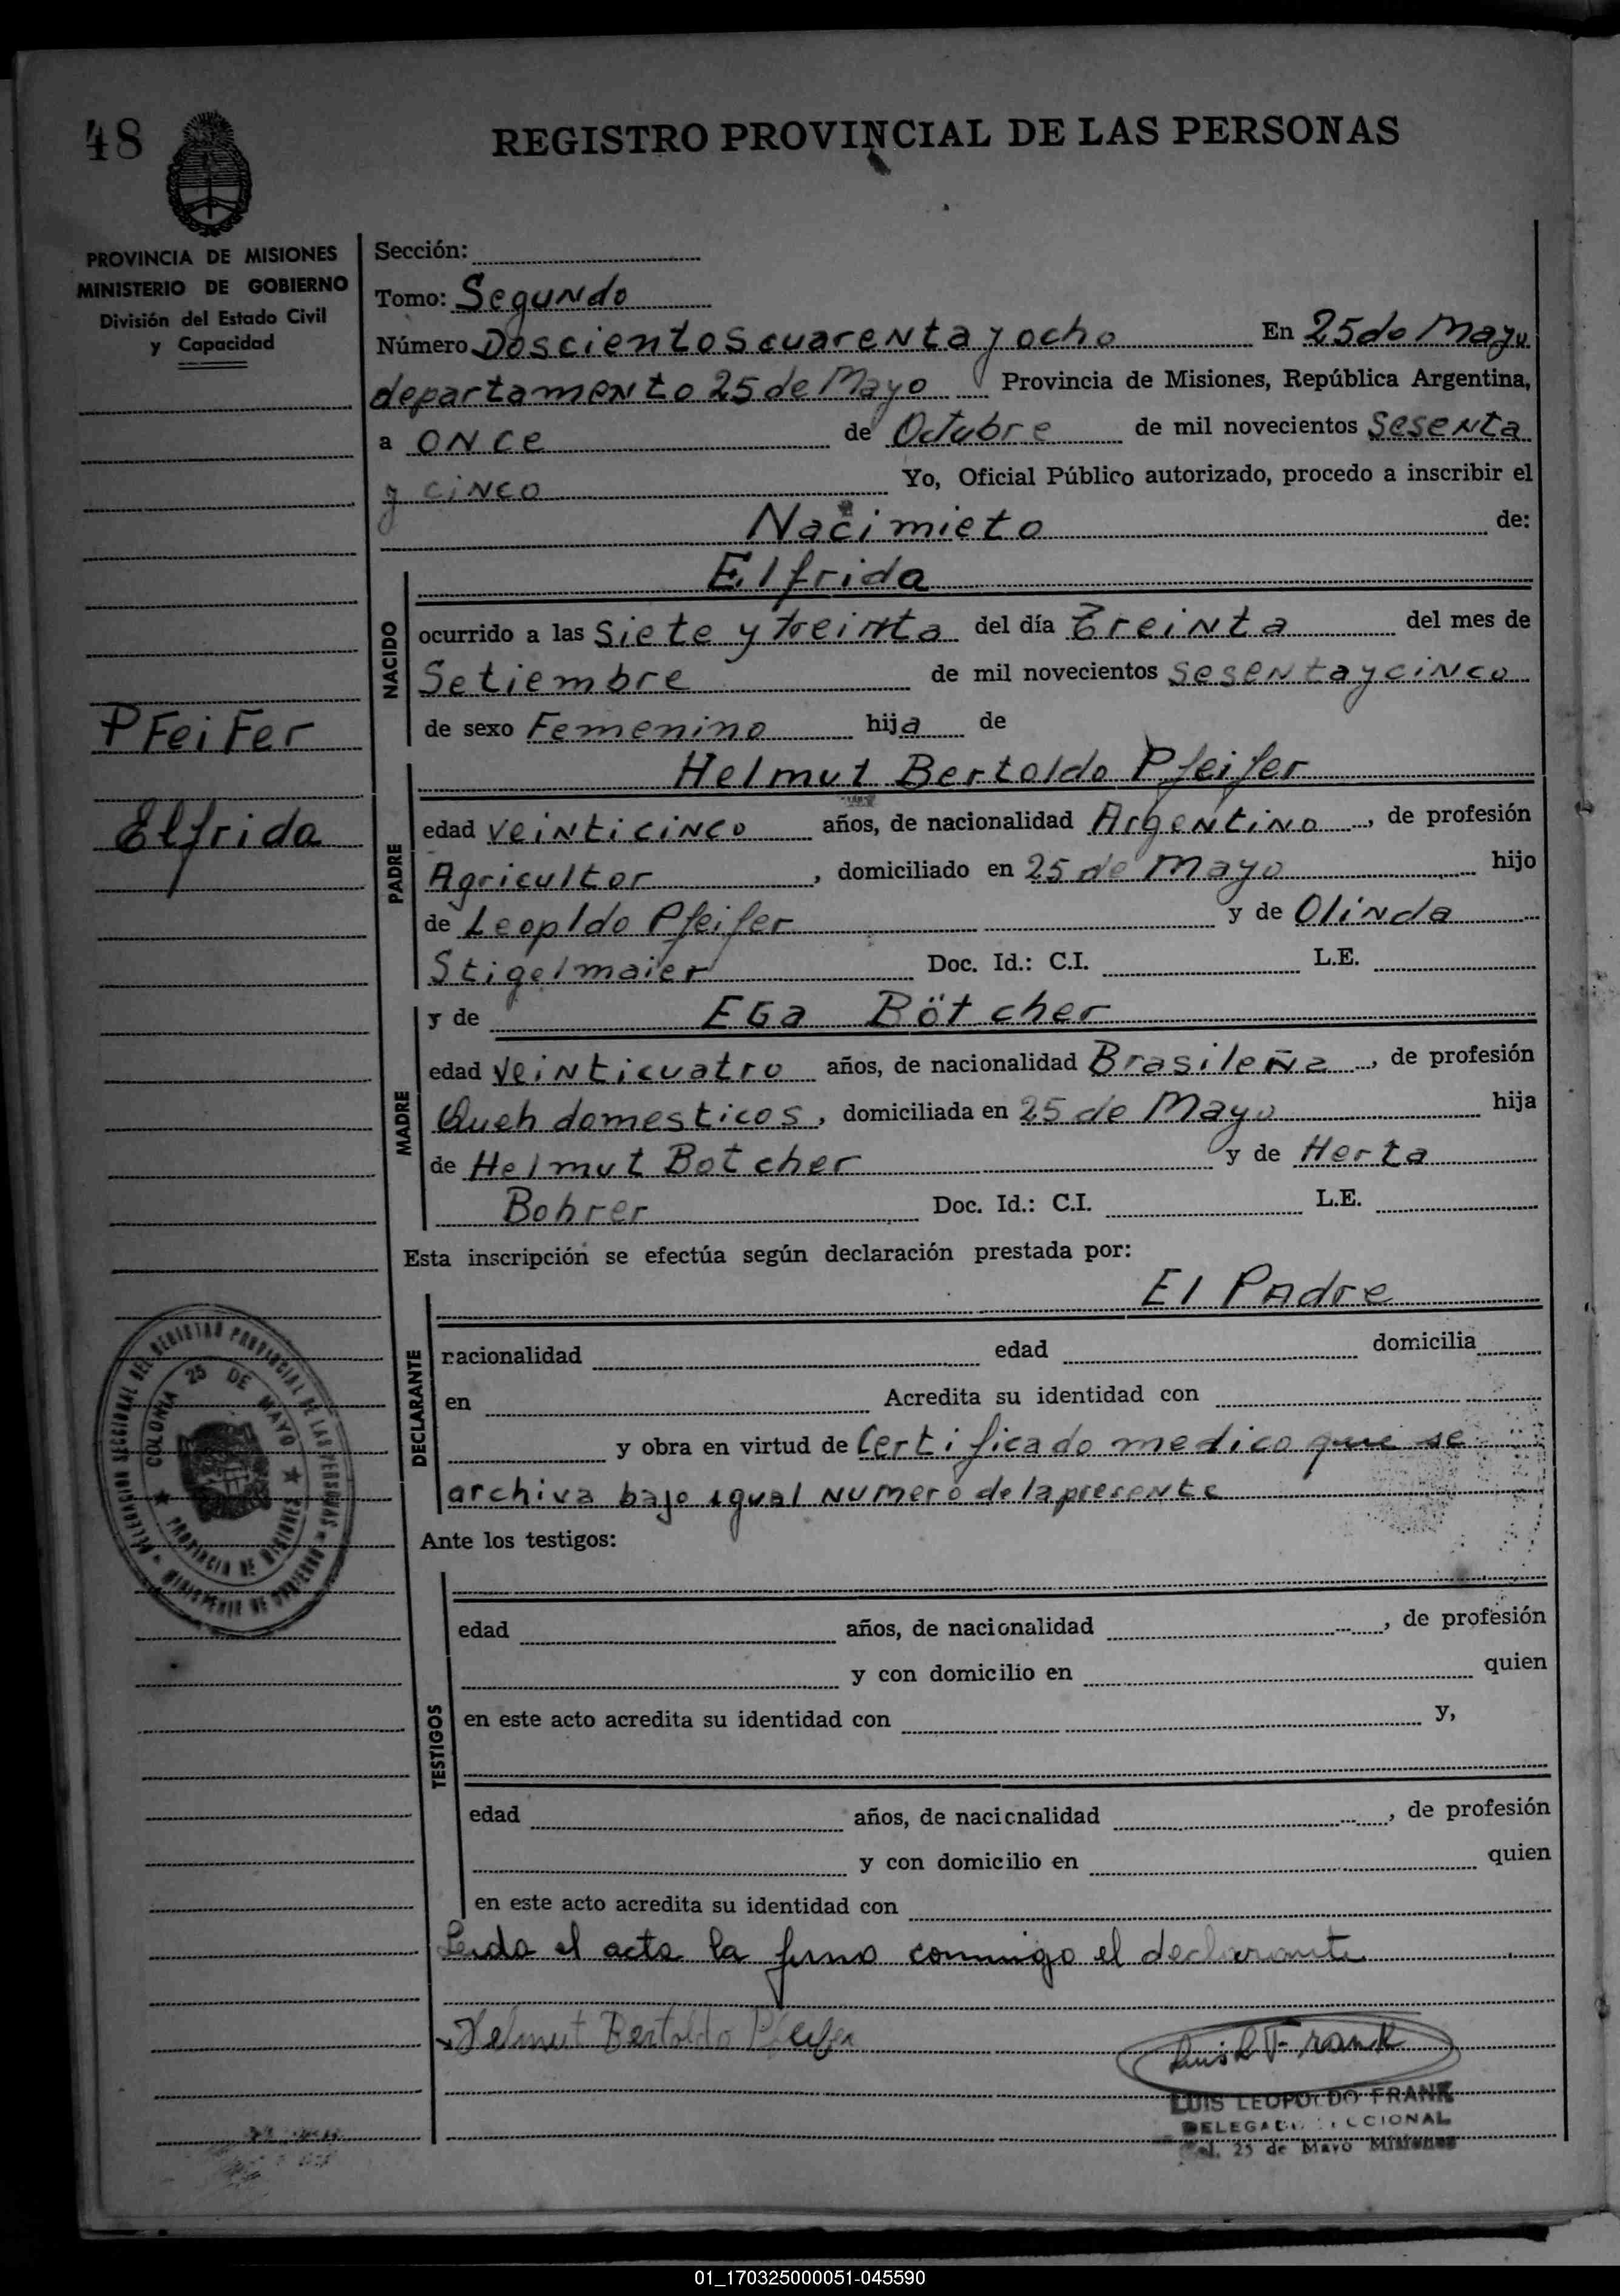 48
REGISTRO PROVINCIAL DE LAS PERSONAS
PROVINCIA DE MISIONES
MINISTERIO DE GOBIERNO
División del Estado Civil
y Capacidad
Pfeifer
Elfrida
Sección:
Tomo: Segundo
Número Doscientos cuarenta y ocho En 25 de Mayo
departamento 25 de Mayo Provincia de Misiones, República Argentina,
a once de Octubre de mil novecientos Sesenta
y cinco Yo, Oficial Público autorizado, procedo a inscribir el
Nacimieto de:
NACIDO
Elfrida
ocurrido a las Siete y treinta del día Treinta del mes de
Setiembre de mil novecientos sesenta y cinco
de sexo Femenino hija de
PADRE
Helmut Bertoldo Pfeifer
edad veinticinco años, de nacionalidad Argentino, de profesión
Agricultor, domiciliado en 25 de Mayo hijo
de Leopldo Pfeifer y de Olinda
Stigelmaier Doc. Id.: C.I. L.E.
MADRE
y de Ega Bötcher
edad veinticuatro años, de nacionalidad Brasileña, de profesión
Queh domesticos, domiciliada en 25 de Mayo hija
de Helmut Botcher y de Herta
Bohrer Doc. Id.: C.I. L.E.
Esta inscripción se efectúa según declaración prestada por:
El Padre
DECLARANTE
nacionalidad edad domicilia
en Acredita su identidad con
y obra en virtud de Certificado medico que se
archiva bajo igual numero de la presente
Ante los testigos:
TESTIGOS
edad años, de nacionalidad , de profesión
y con domicilio en quien
en este acto acredita su identidad con y,
edad años, de nacionalidad , de profesión
y con domicilio en quien
en este acto acredita su identidad con
Leida el acta la firma conmigo el declarante
Helmut Bertoldo Pfeifer
Luis L Frank
LUIS LEOPOLDO FRANK
DELEGADO SECCIONAL
Col. 25 de Mayo Misiones
DELEGACION SECCIONAL DEL REGISTRO PROVINCIAL DE LAS PERSONAS
MINISTERIO DE GOBIERNO
COLONIA 25 DE MAYO
PROVINCIA DE MISIONES
01_170325000051-045590